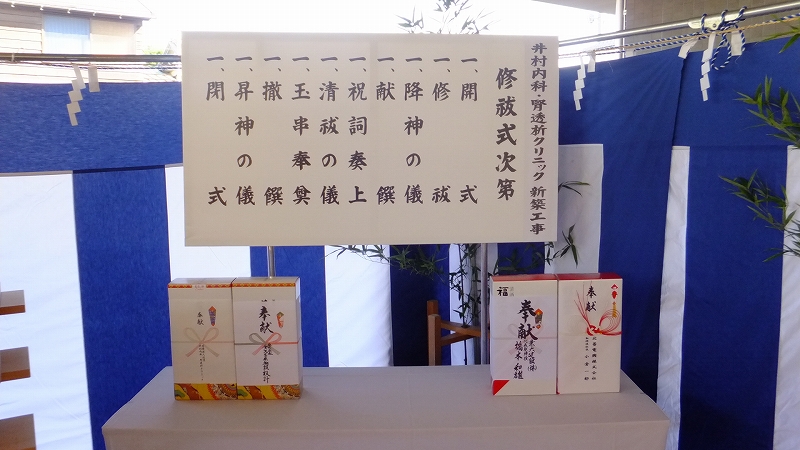 井村内科・腎透析クリニック 新築工事
修祓式次第
一、開式
一、修祓
一、降神の儀
一、献饌
一、祝詞奏上
一、清祓の儀
一、玉串奉奠
一、撤饌
一、昇神の儀
一、閉式
奉献
奉献
福
奉献
奉献